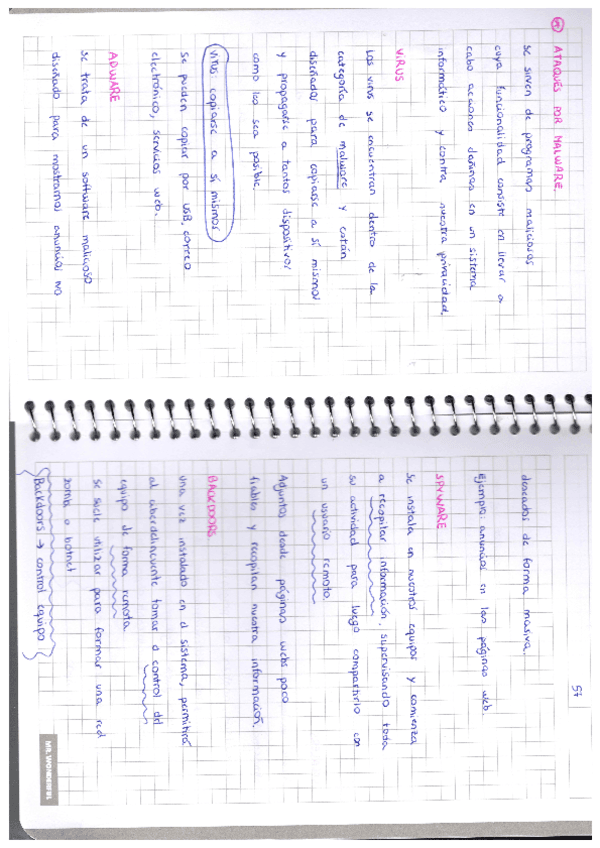 ④ ATAQUES POR MALWARE.
se sirven de programas maliciosos
cuya funcionalidad consiste en llevar a
cabo acciones dañinas en un sistema
informático y contra nuestra privacidad.
VIRUS
Los virus se encuentran dentro de la
categoría de malware y están
diseñados para copiarse a sí mismos
y propagarse a tantos dispositivos
como les sea posible.
virus: copiarse a sí mismos
se pueden copiar por USB, correo
electrónico, servicios web.
ADWARE
se trata de un software malicioso
diseñado para mostrarnos anuncios no
57
deseados de forma masiva.
Ejemplo: anuncios en las páginas web.
SPYWARE
se instala en nuestros equipos y comienza
a recopilar información, supervisando toda
su actividad para luego compartirlo con
un usuario remoto.
Adjuntos desde páginas webs poco
fiables y recopilan nuestra información.
BACKDOORS
una vez instalado en el sistema, permitirá
al ciberdelincuente tomar el control del
equipo de forma remota.
se suele utilizar para formar una red
zombi o botnet
Backdoors → control equipo
MR. WONDERFUL